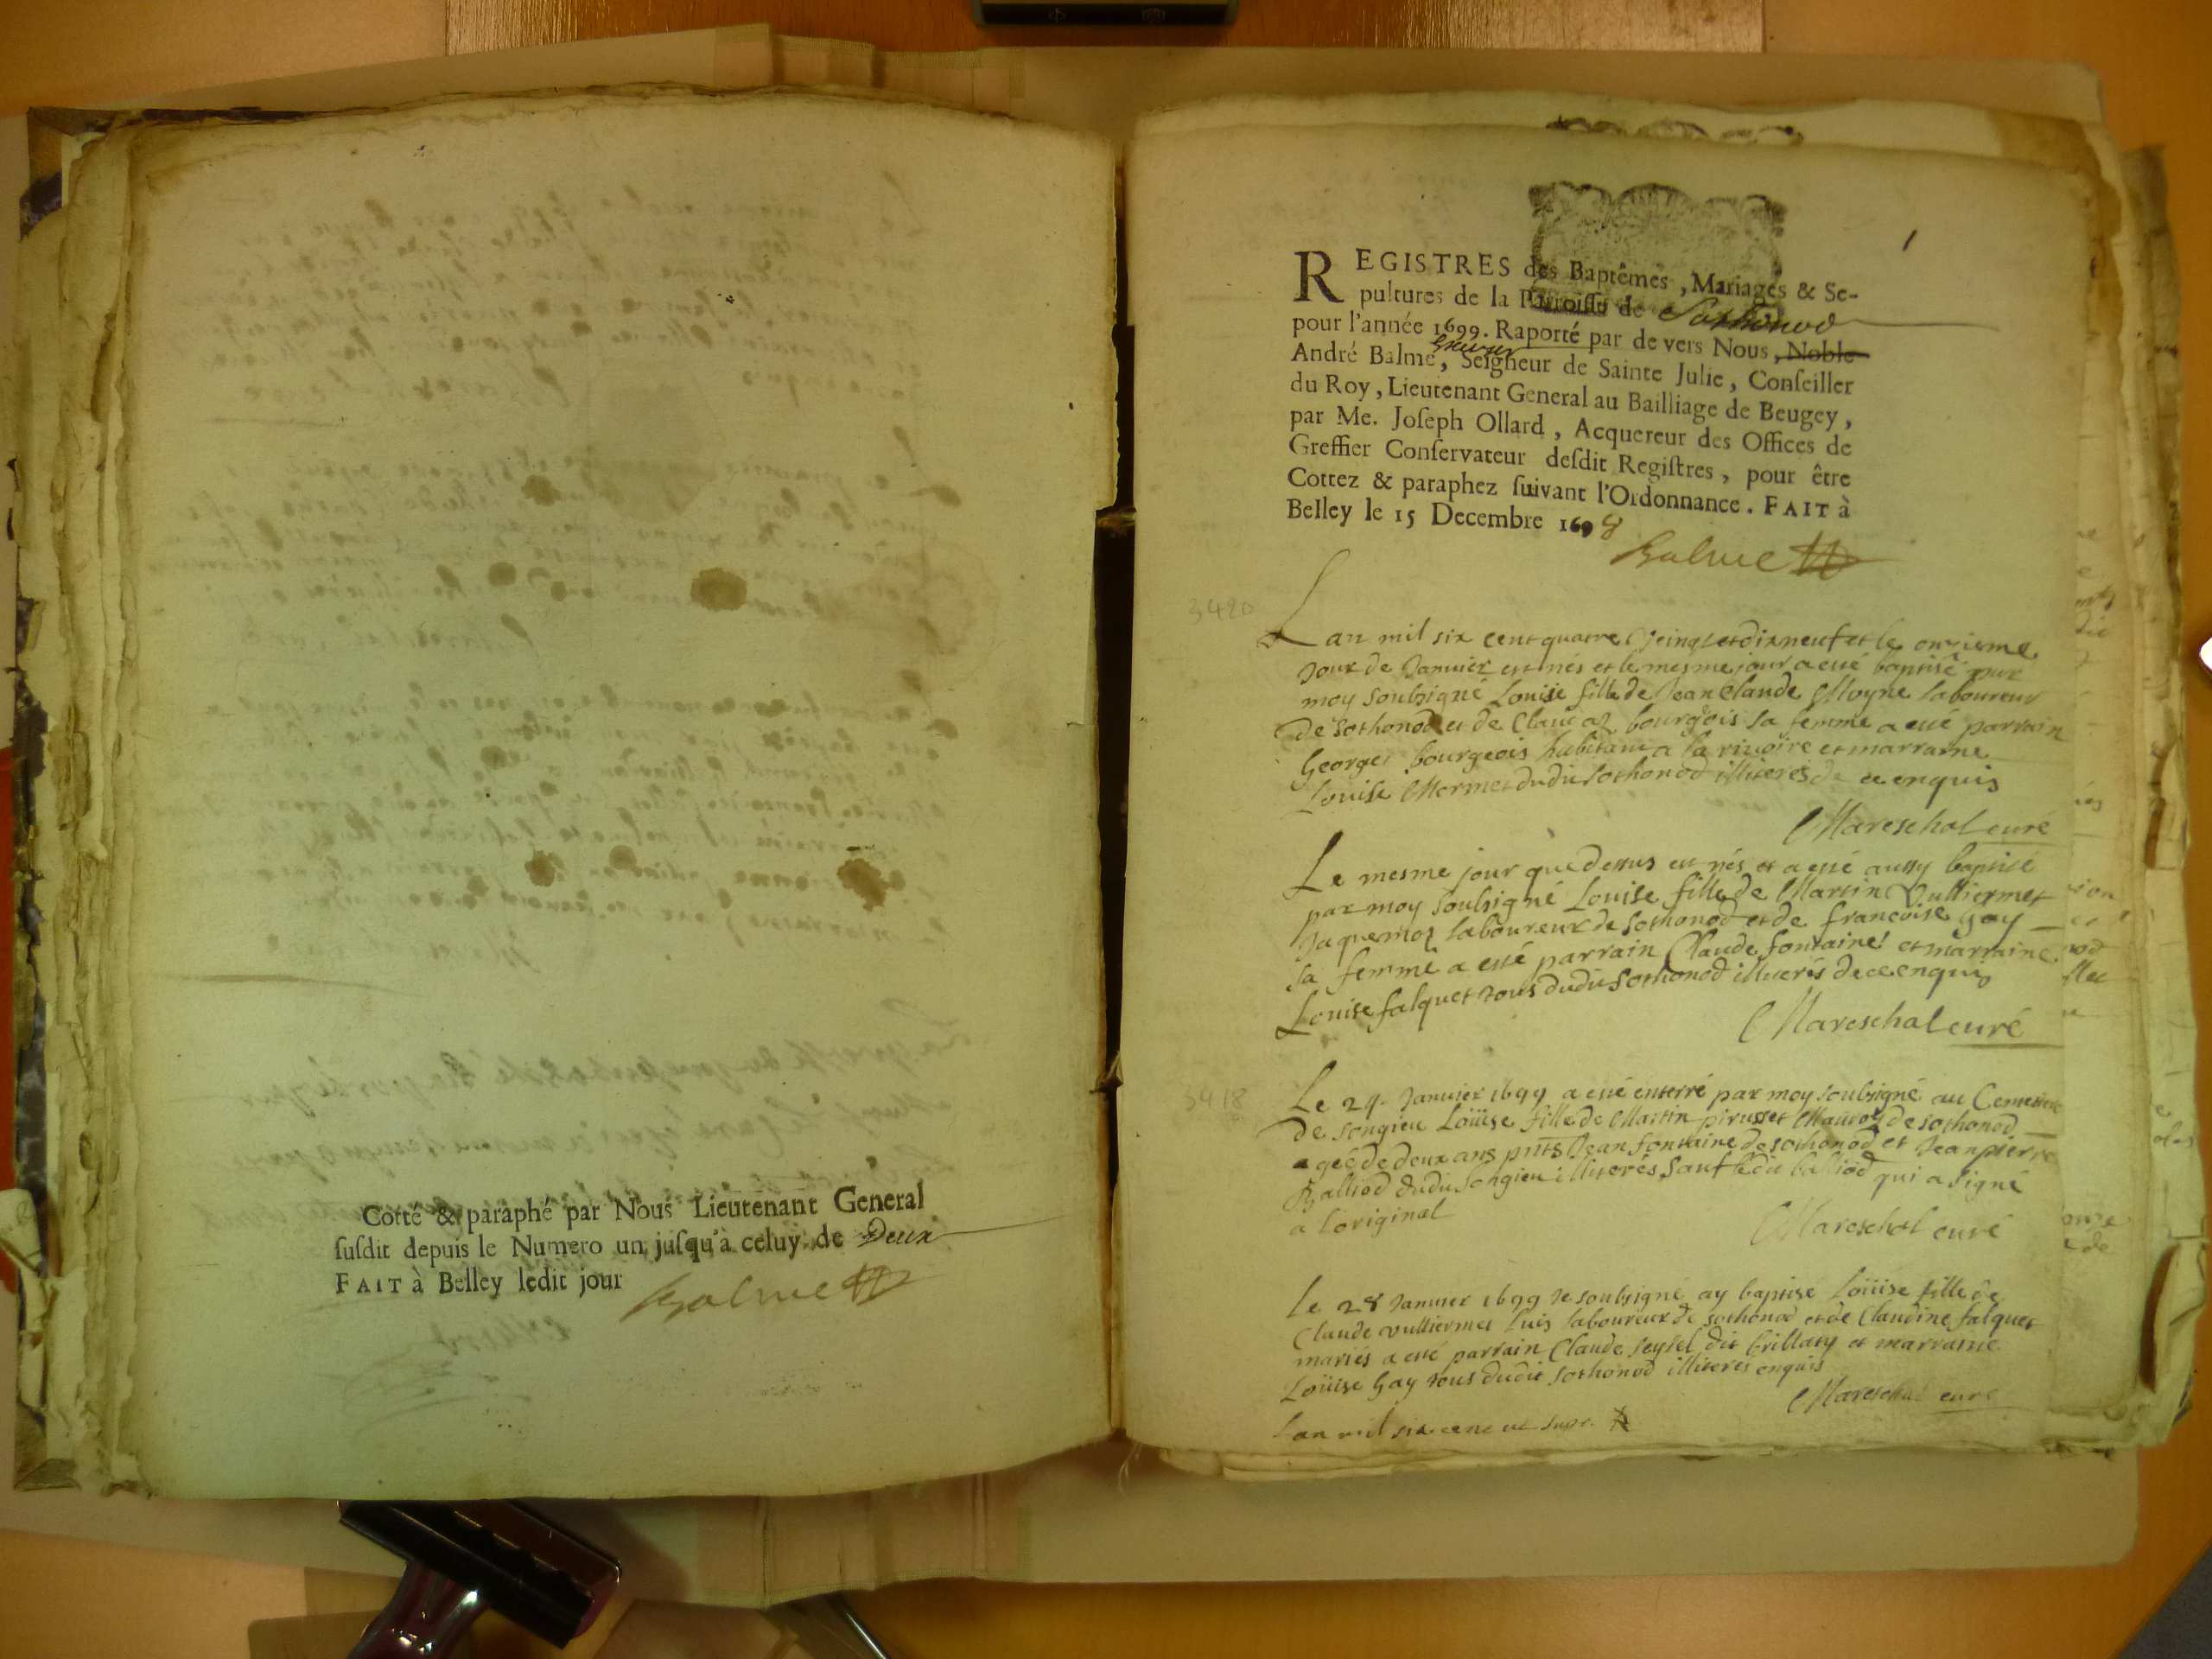 Cotté & paraphé par Nous Lieutenant General
ſuſdit depuis le Numero un juſqu'à celuy de Deux
FAIT à Belley ledit jour
Balme
1
REGISTRES des Baptêmes, Mariages & Se-
pultures de la Parroiſſe de Sothonod
pour l'année 1699. Raporté par de vers Nous, Noble
André Balme, Seigneur de Sainte Julie, Conſeiller
du Roy, Lieutenant General au Bailliage de Beugey,
par Me. Joſeph Ollard, Acquereur des Offices de
Greffier Conſervateur deſdit Regiſtres, pour être
Cottez & paraphez ſuivant l'Ordonnance. FAIT à
Belley le 15 Decembre 1698
Balme
3420
Lan mil six cent quatre veingt et dix neuf et le onzieme
Jour de Janvier est nés et le mesme jour a esté baptisé par
moy soubsigné Louise fille de Jean Claude Moyne laboureur
de Sothonod et de Claudaz bourgois sa femme a esté parrain
George bourgeois habitant a la rivoire et marraine
Louise Mermet dudit Sothonod illiterés de ce enquis
Mareschal curé
Le mesme jour que dessus est nés et a esté aussy baptisé
par moy soubsigné Louise fille de Martin Vulliermet
Jaquemoz laboureur de Sothonod et de francoise Gay
sa femme a esté parrain Claude fontaine et marraine
Louise falquet tous dudit Sothonod illiterés de ce enquis
Mareschal curé
3418
Le 24 Janvier 1699 a esté enterré par moy soubsigné au Cemetiere
de Songieu Loüise fille de Martin pirusset de Sothonod
agéé de deux ans pnts Jean fontaine de sothonod et Jean pierre
Balliod dudit Songieu illiterés sauf ledit balliod qui a signé
a loriginal
Mareschal curé
Le 28 Janvier 1699 Je soubsigné ay baptisé Loüise fille de
Claude vulliermet Luis laboureur de sothonod et de Claudine falquet
mariés a esté parrain Claude seysel dit brillaty et marraine
Loüise Gay tous dudit Sothonod illiterés enquis
Mareschal curé
Lan mil six cent